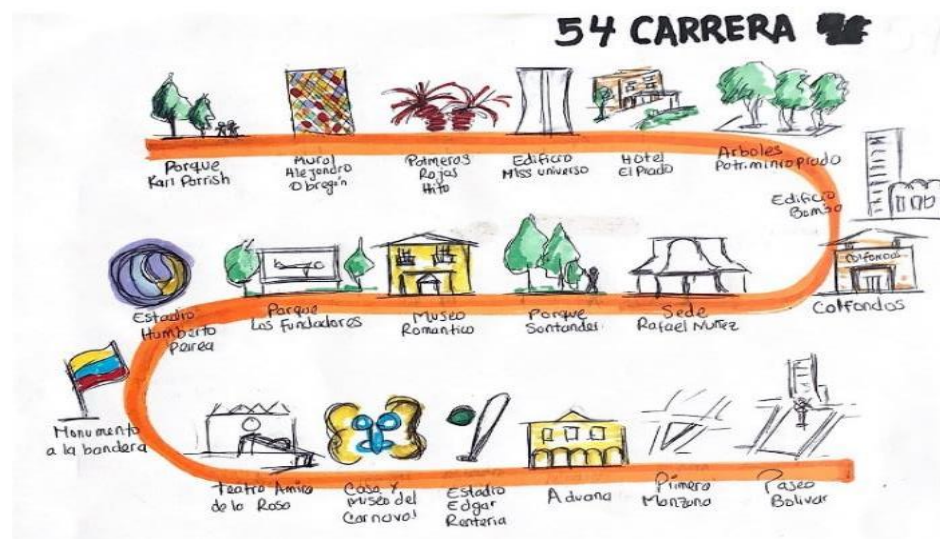 54 CARRERA
Parque
Karl Parrish
Mural
Alejandro
Obregón
Palmeras
Rojas
Hito
Edificio
Miss universo
Hotel
El Prado
Arboles
Patriminio prado
Edificio
COLFONDOS
Colfondos
Estadio
Humberto
Perea
Parque
Los Fundadores
Museo
Romantico
Parque
Santander
Sede
Rafael Nuñez
Monumento
a la bandera
Teatro Amira
de la Rosa
Casa y
museo del
Carnaval
Estadio
Edgar
Renteria
Aduana
Primera
Manzana
Paseo
Bolivar